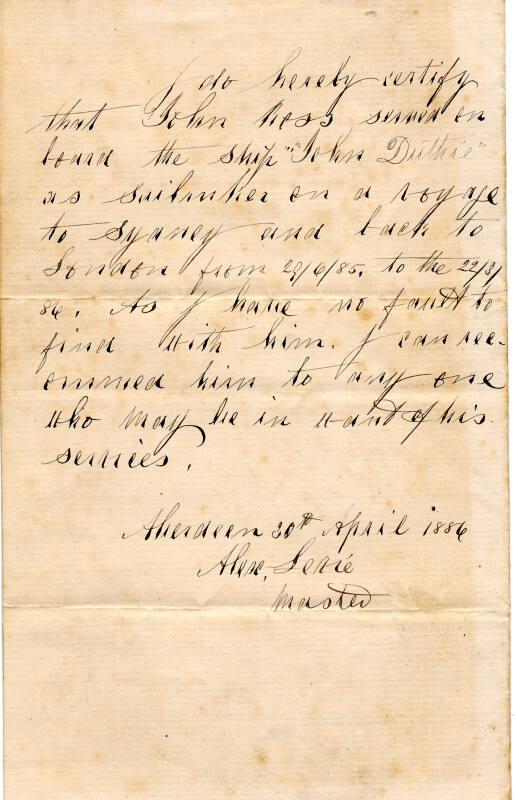 I do hereby certify
that John Ross served on
board the ship "John Duthie"
as sailmker on a voyage
to Sydney and back to
London from 29/6/85. to the 22/3/
86. As I have no fault to
find with him. I can rec-
ommed him to any one
who may be in want of his
services.
Aberdeen 30th April 1886
Alex. Levie
Master